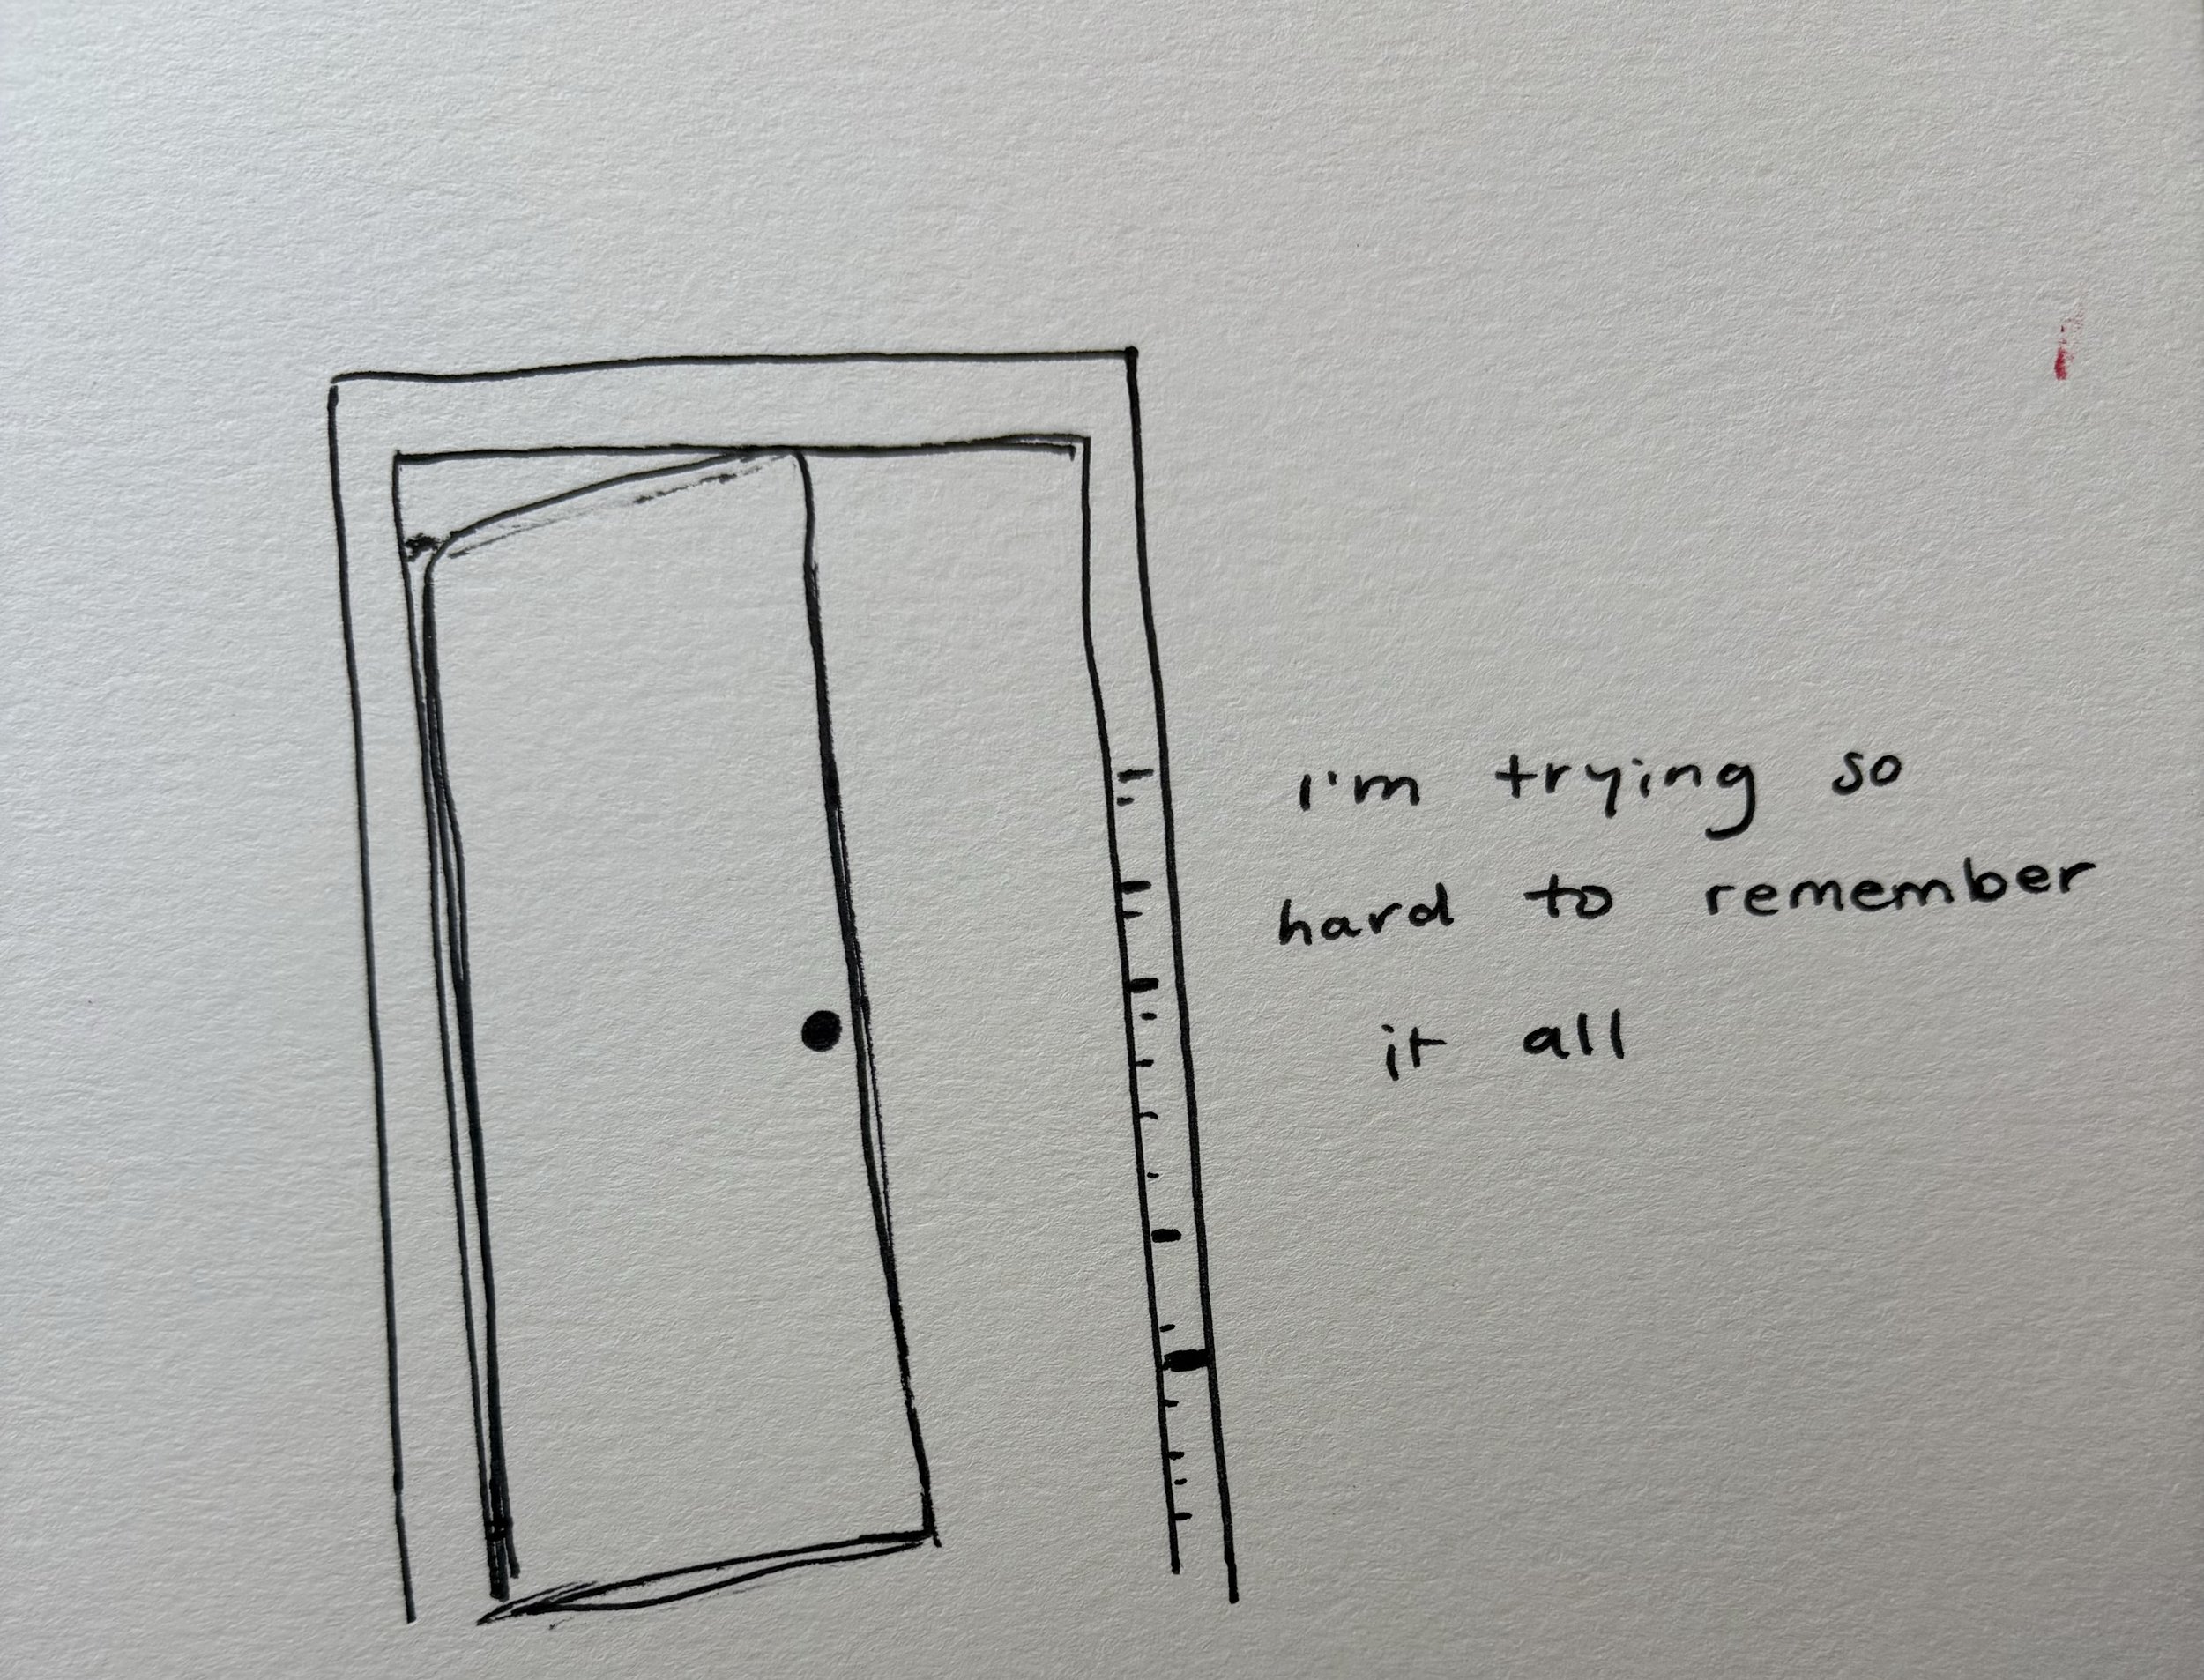 I'm trying so
hard to remember
it all